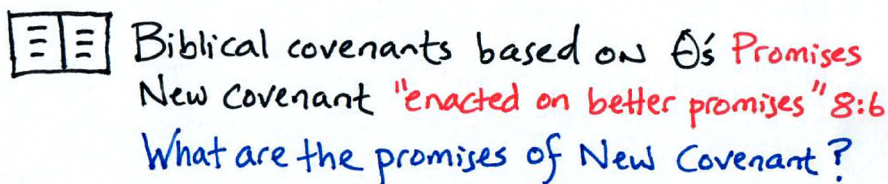 Biblical covenants based on θ's Promises
New Covenant "enacted on better promises" 8:6
What are the promises of New Covenant?